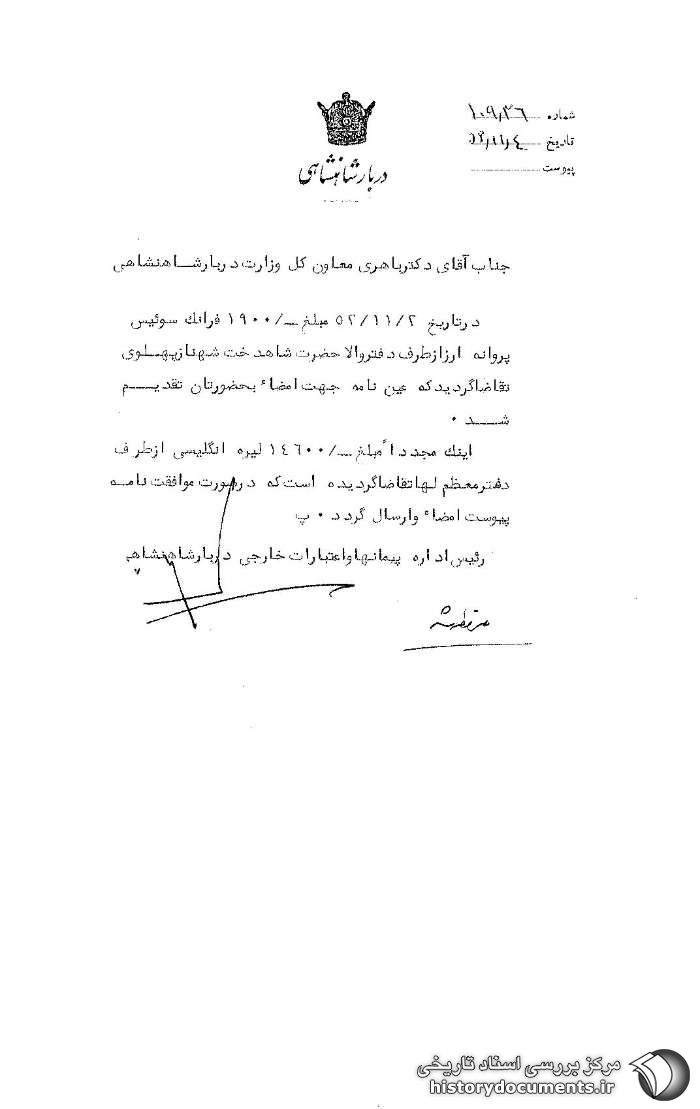 شماره ۱۰۹۳۶
تاریخ ۵۲/۱۱/٤
پیوست
دربار شاهنشاهی
جناب آقای دکترباهری معاون کل وزارت دربارشاهنشاهی
درتاریخ ۵۲/۱۱/۲ مبلغ ـ/۱۹۰۰ فرانك سوئیس
پروانه ارزازطرف دفتروالا حضرت شاهدخت شهنازپهلوی
تقاضاگردیدکه عین نامه جهت امضاء بحضورتان تقدیم
شد ۰
اینك مجدداً مبلغ ـ/۱٤٦۰۰ لیره انگلیسی ازطرف
دفترمعظم لهاتقاضاگردیده است که درصورت موافقت نامه
پیوست امضاء وارسال گردد ۰ پ
رئیس اداره پیمانهاواعتبارات خارجی دربارشاهنشاهی
مرکز بررسی اسناد تاریخی
historydocuments.ir